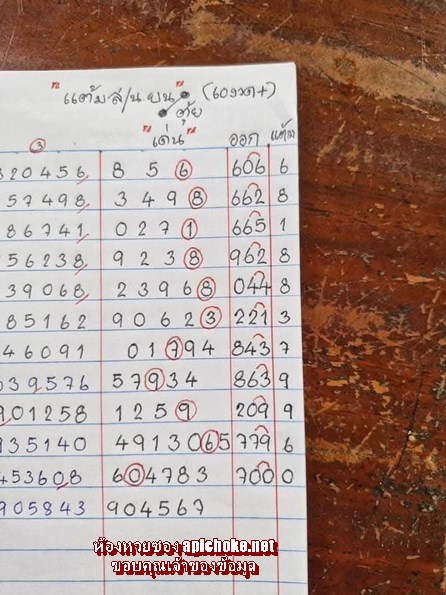 "แต้ม ส/น บน" (เดงวด+)
ตุ้ย
③ "เด่น" ออก แต้ม
320456 8 5 6 606 6
57498 3 4 9 8 662 8
86741 0 2 7 1 665 1
56238 9 2 3 8 962 8
39068 2 3 9 6 8 044 8
85162 9 0 6 2 3 221 3
46091 0 1 7 9 4 843 7
039576 5 7 9 3 4 863 9
901258 1 2 5 9 209 9
935140 4 9 1 3 0 6 5 779 6
453608 6 0 4 7 8 3 700 0
905843 9 0 4 5 6 7
ห้องหวยซอง apichoke.net
ขอบคุณเจ้าของข้อมูล